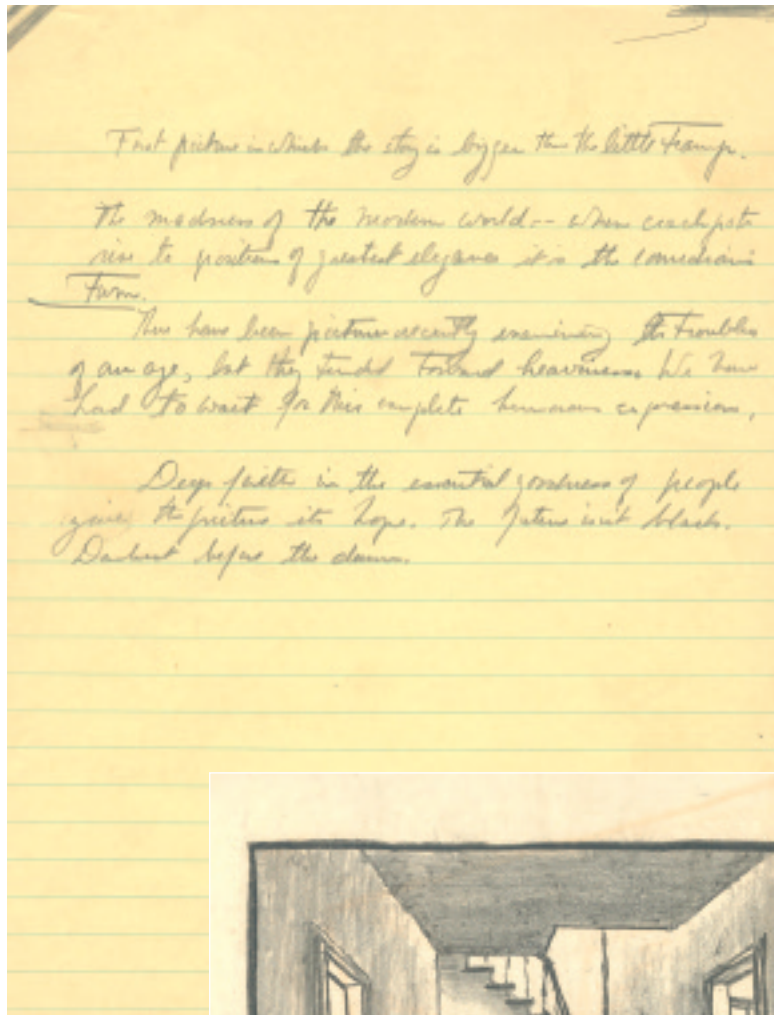 First picture in which the story is bigger than the little tramp.
The madness of the modern world -- when crackpots
rise to positions of greatest elegance it is the comedian's
Turn.
There have been pictures recently examining the troubles
of our age, but they tended toward heaviness. We have
had to wait for this complete humorous expression.
Deep faith in the essential goodness of people
gives the picture its hope. The future isn't black.
Darkest before the dawn.